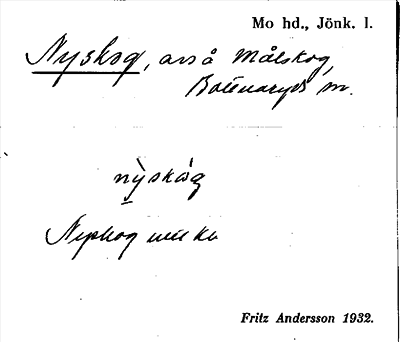 Mo hd., Jönk. l.
Nyskog, avs å Målskog,
Bottnaryds sn.
nỳskò̀g
Nyskog
Fritz Andersson 1932.